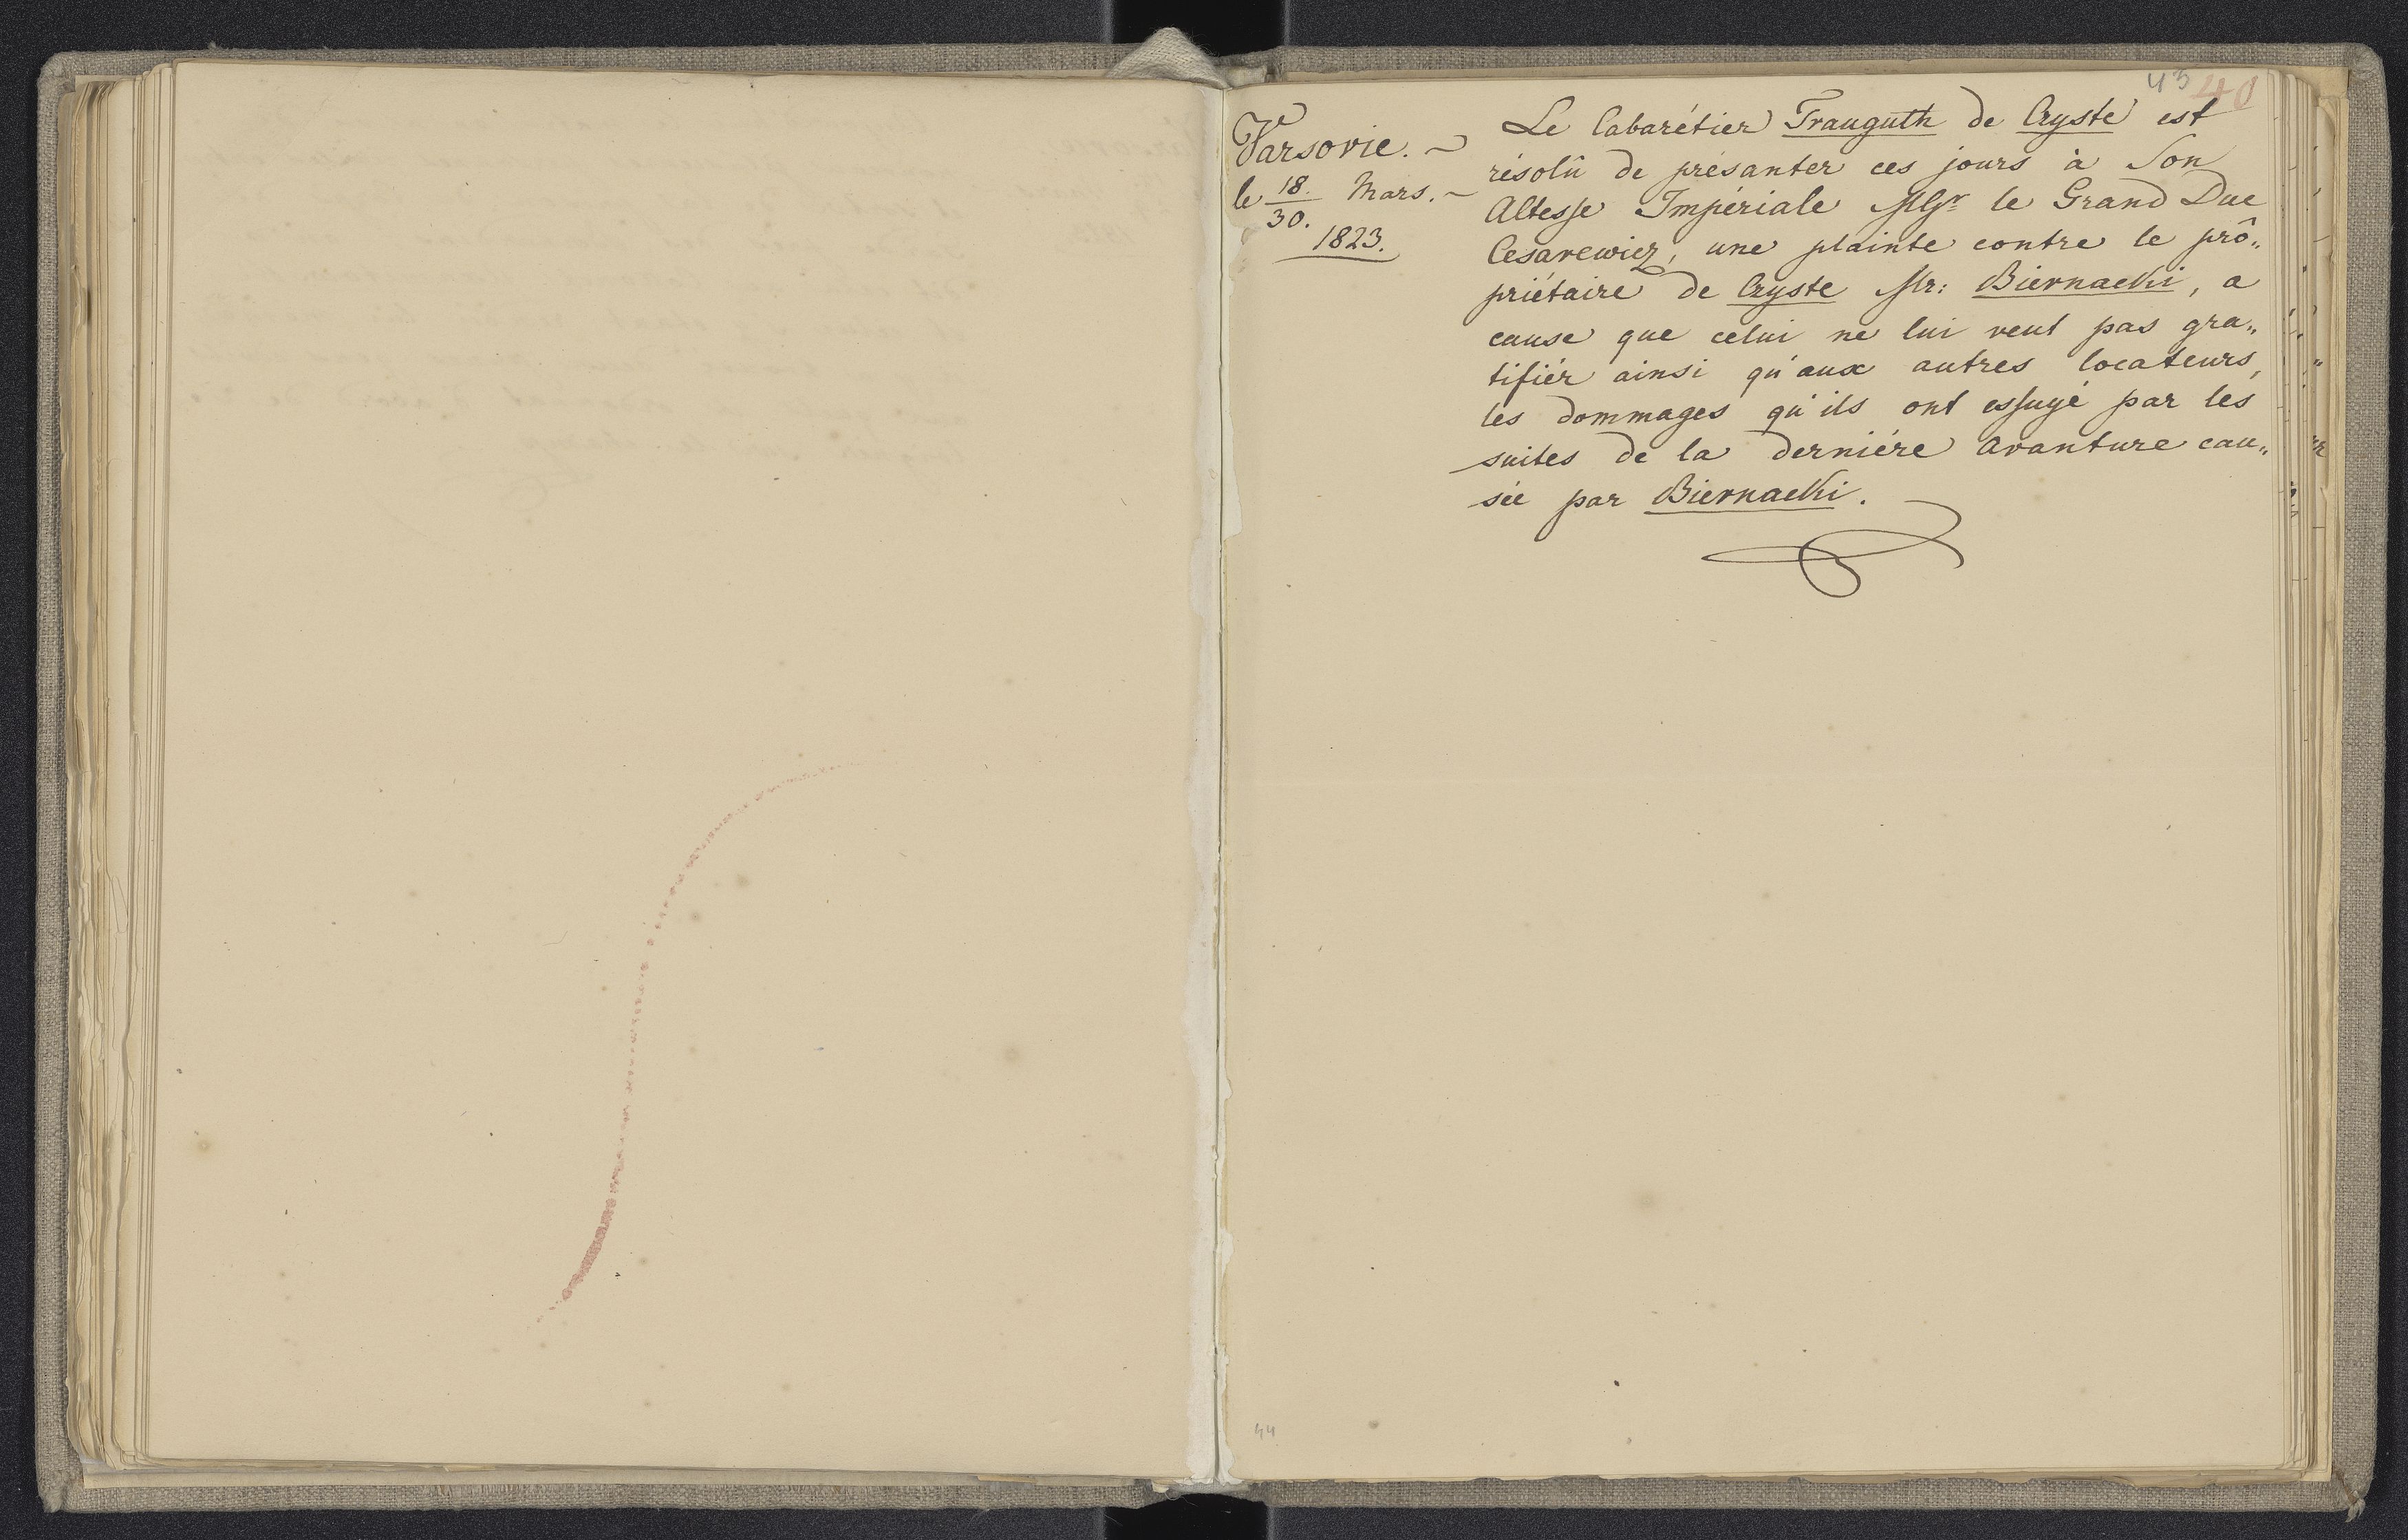 43 40
Varsovie. ~
le 18./30. Mars. ~
1823.
Le Cabarétier Trauguth de Czyste est
résolû de présanter ces jours à Son
Altesse Impériale MGr le Grand Duc
Cesarewicz, une plainte contre le prô„
priétaire de Czyste Mr: Biernacki, a
cause que celui ne lui veut pas gra„
tifiér ainsi qu'aux autres locateurs,
les dommages qu'ils ont essuyé par les
suites de la derniére avanture cau„
sée par Biernacki.
44